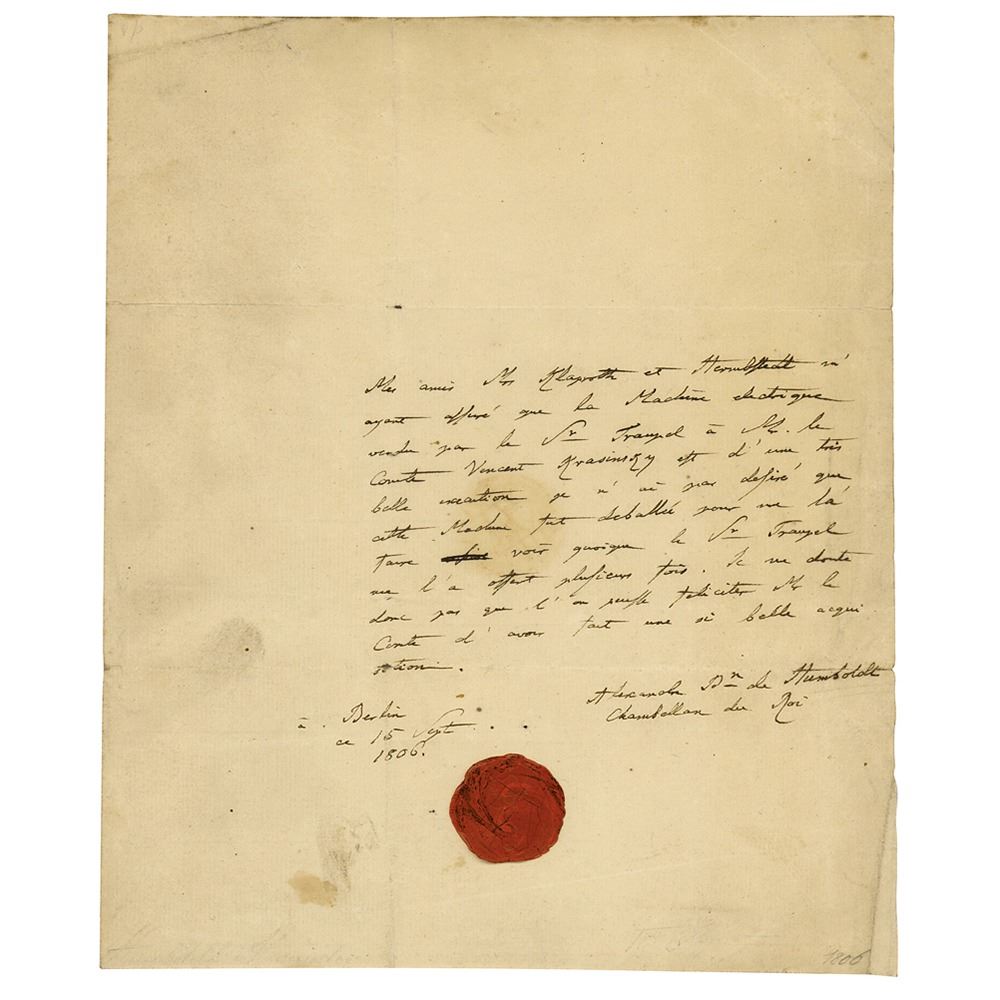 Mes amis Mrs Klaproth et Hermbstedt m'
ayant assuré que la Machine electrique
vendu par le Sr Trampel à Mr. le
Comte Vincent Krasinsky est d'une très
belle execution je n'ai pas desiré que
cette Machine fut deballée pour me la
faire voir quoique le Sr Trampel
me l'a offert plusieurs fois. Je ne doute
donc pas que l'on puisse feliciter Mr le
Comte d'avoir fait une si belle acqui
sition.
Alexandre Bn de Humboldt
Chambellan du Roi
à Berlin
ce 15 Sept
1806.
1806